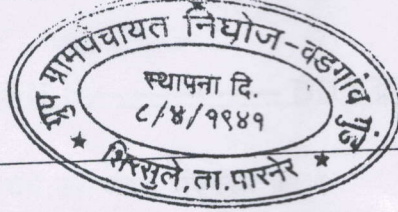 ग्रुप ग्रामपंचायत निघोज-वडगांव गुंड
स्थापना दि.
८/४/१९४१
★ शिरसुले, ता. पारनेर ★